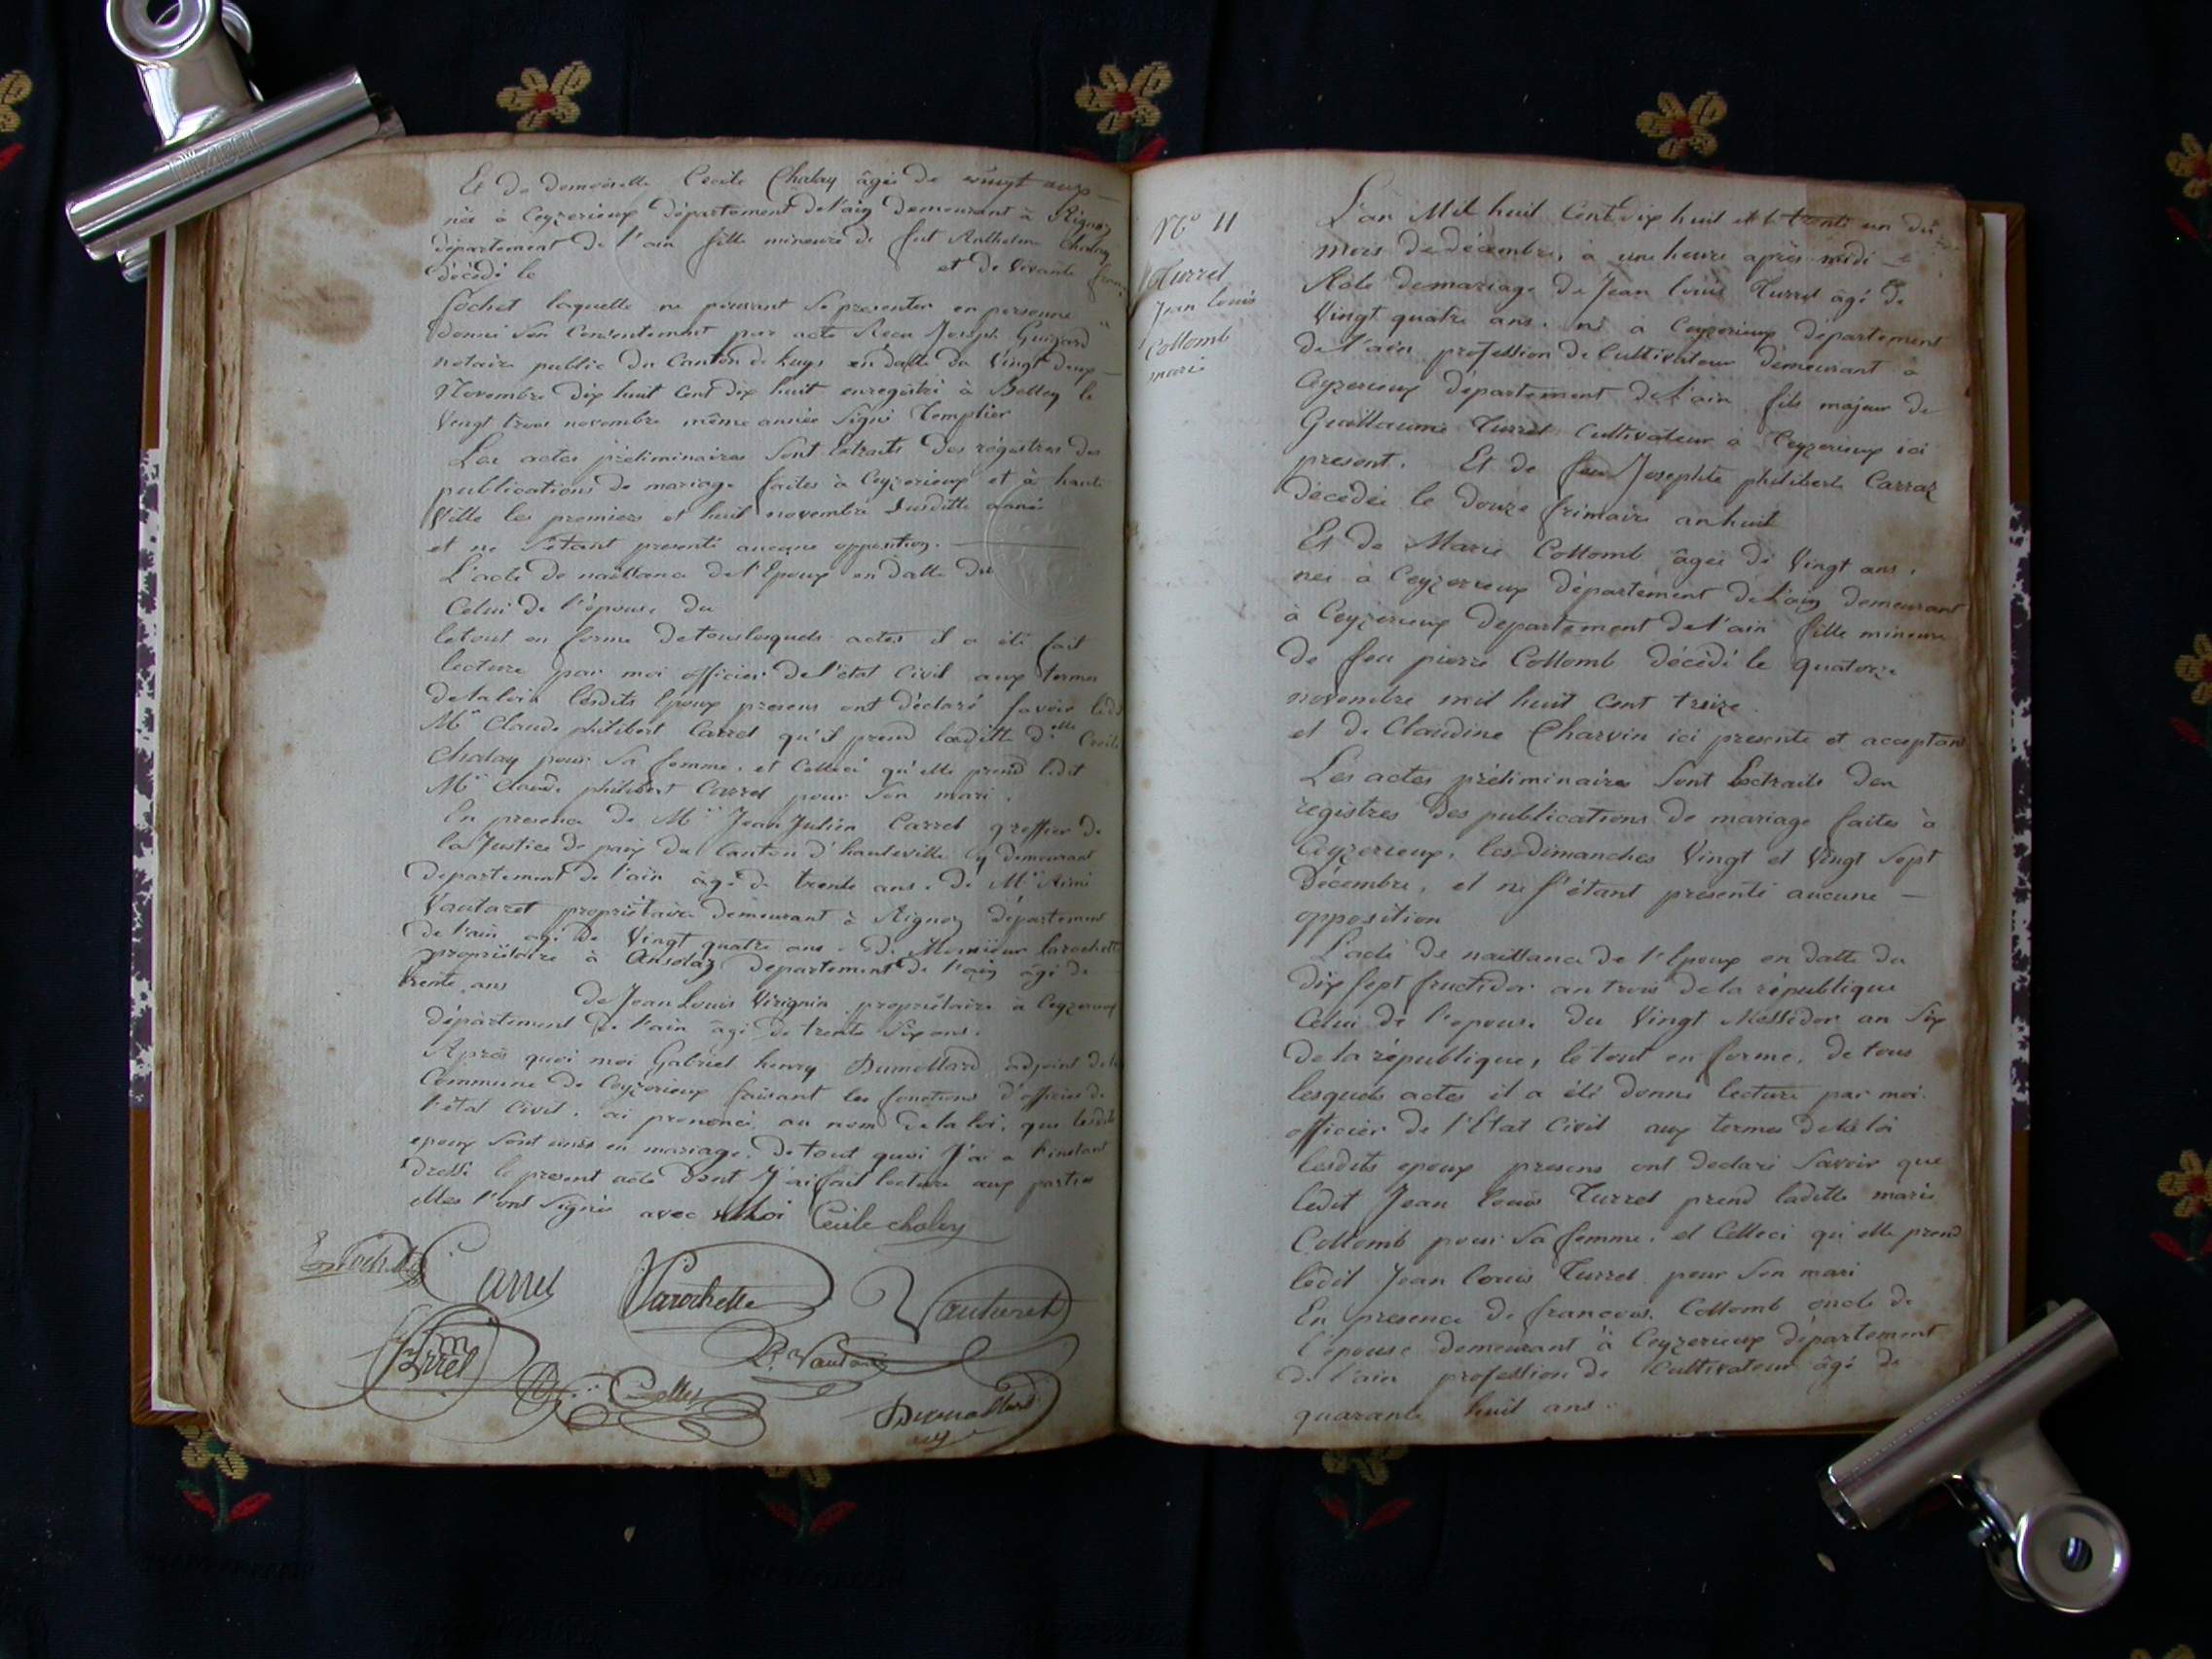 Et de demoiselle Cecile Chalay âgée de vingt ans
née à Ceyzerieux département de l'ain demeurant à
département de l'ain fille mineure de feu Anthelme Chalay
décédé le et de vivante
Cochet laquelle ne pouvant se presenter en personne
donné son consentement par acte Recu Joseph
notaire public du Canton de en datte du Vingt deux
Novembre dix huit Cent dix huit enregistré à Belley le
Vingt trois novembre même année Signé Templier
Les actes préliminaires Sont Extraits des régistres des
publications de mariage faites à Ceyzerieux et à haute
Ville les premiers et huit novembre Susditte année
et ne s'étant presenté aucune opposition.
L'acte de naissance de l'Epoux en datte du
Celui de l'épouse du
le tout en forme de tous lesquels actes il a été fait
lecture par moi officier de l'état Civil aux termes
de la loi. Lesdits Epoux presens ont déclaré savoir
Mr Claude philibert Carrel qu'il prend laditte delle Cecile
Chalay pour Sa femme. et Celleci qu'elle prend ledit
Mr Claude philibert Carrel pour Son mari.
En presence de Mr Jean Julien Carrel greffier de
la Justice de paix du Canton d'hauteville y demeurant
département de l'ain âgé de trente ans. de Mr Aimé
Vautaret propriétaire demeurant à département
de l'ain agé de Vingt quatre ans. de Monsieur Larochette
propriétaire à département de l'ain âgé de
trente ans de Jean Louis Virignin propriétaire à Ceyzerieux
département de l'ain âgé de trente Six ans.
Après quoi moi Gabriel henry Dumollard adjoint de la
Commune de Ceyzerieux faisant les fonctions d'officier de
l'état Civil. ai prononcé au nom de la loi, que lesdits
epoux Sont unis en mariage. de tout quoi J'ai a l'instant
dressé le present acte dont J'ai fait lecture aux parties
elles l'ont Signé avec Moi Cecile chaley
Carrel Larochette Vautaret
Dumollard
No 11
Turrel
Jean louis
Collomb
marie
L'an Mil huit Cent dix huit et le trente un du
mois de décembre, à une heure après midi
Acte de mariage de Jean louis Turrel âgé de
Vingt quatre ans. né à Ceyzerieux département
de l'ain profession de Cultivateur demeurant à
Ceyzerieux département de l'ain fils majeur de
Guillaume Turrel Cultivateur à Ceyzerieux ici
present. Et de feu Josephte philiberte Carraz
décédée le douze frimaire an huit
Et de Marie Collomb âgée de Vingt ans.
née à Ceyzerieux département de L'ain demeurant
à Ceyzerieux département de l'ain fille mineure
de feu pierre Collomb décédé le quatorze
novembre mil huit Cent treize.
et de Claudine Charvin ici presente et acceptant
Les actes préliminaires Sont Extraits des
régistres des publications de mariage faites à
Ceyzerieux, les dimanches Vingt et Vingt Sept
Décembre, et ne s'étant presenté aucune
opposition
L'acte de naissance de l'Epoux en datte du
dix sept fructidor an trois de la république
Celui de l'epouse du Vingt Messidor an Six
de la république, le tout en forme. de tous
lesquels actes il a été donné lecture par moi.
officier de l'Etat Civil aux termes de la loi
lesdits epoux presens ont declaré savoir que
ledit Jean louis Turrel prend laditte marie
Collomb pour Sa femme. et Celleci qu'elle prend
ledit Jean louis Turrel pour Son mari
En presence de francois Collomb oncle de
l'épouse demeurant à Ceyzerieux département
de l'ain profession de Cultivateur âgé de
quarante huit ans.